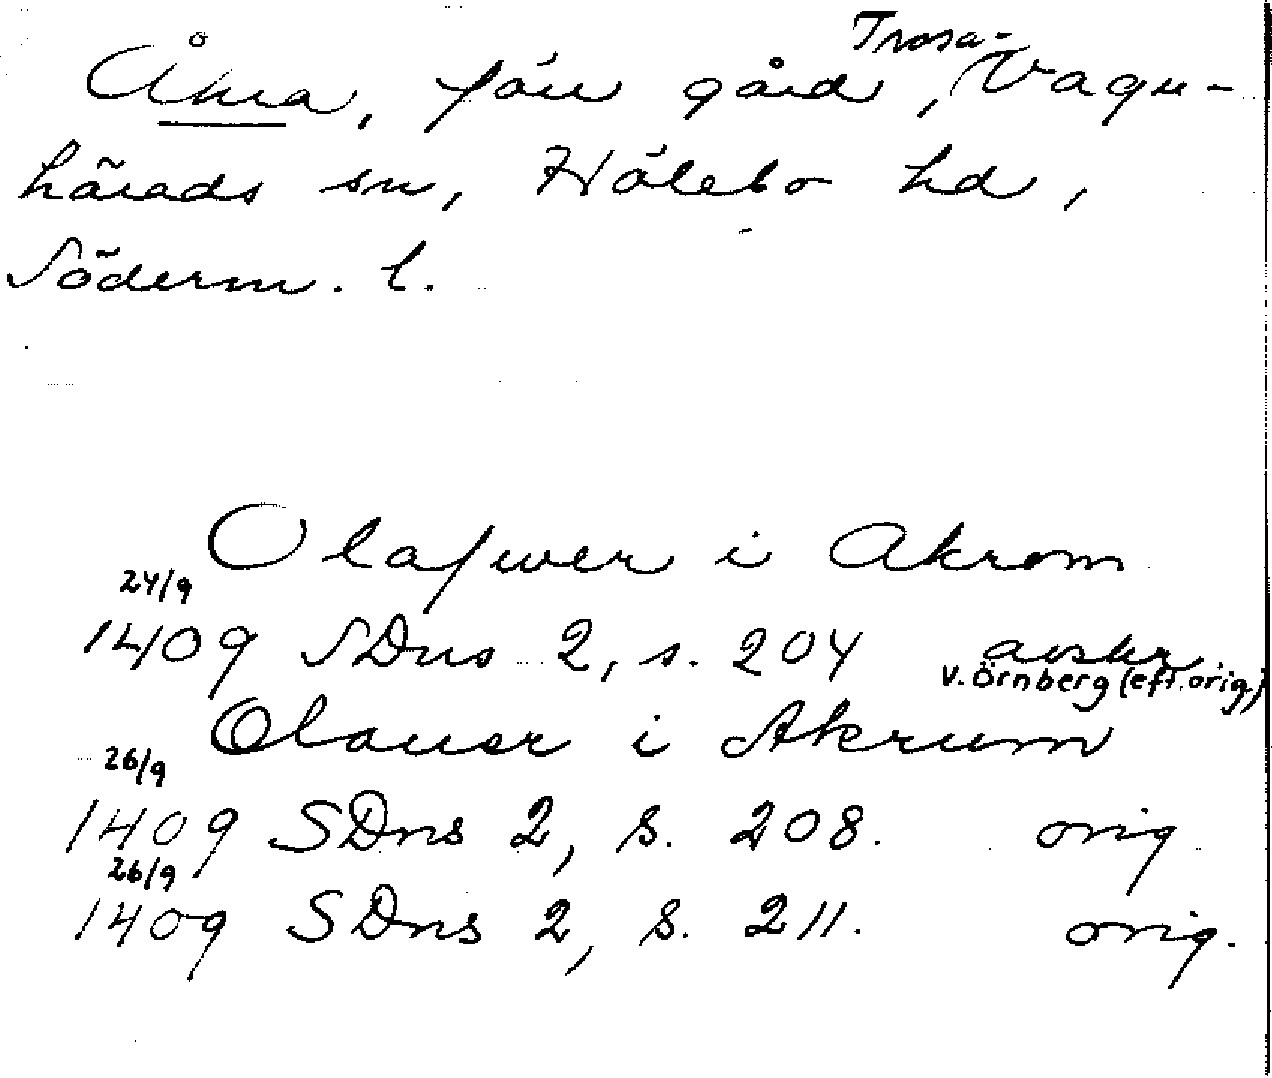 Åkra, förr gård, Trosa-Vagn-
härads sn, Hölebo hd,
Söderm. l.
Olafwer i Akrom
24/9
1409 SDns 2, s. 204 avskr.
v. Örnberg (eft. orig)
Olauer i Akrum
26/9
1409 SDns 2, s. 208. orig.
26/9
1409 SDns 2, s. 211. orig.